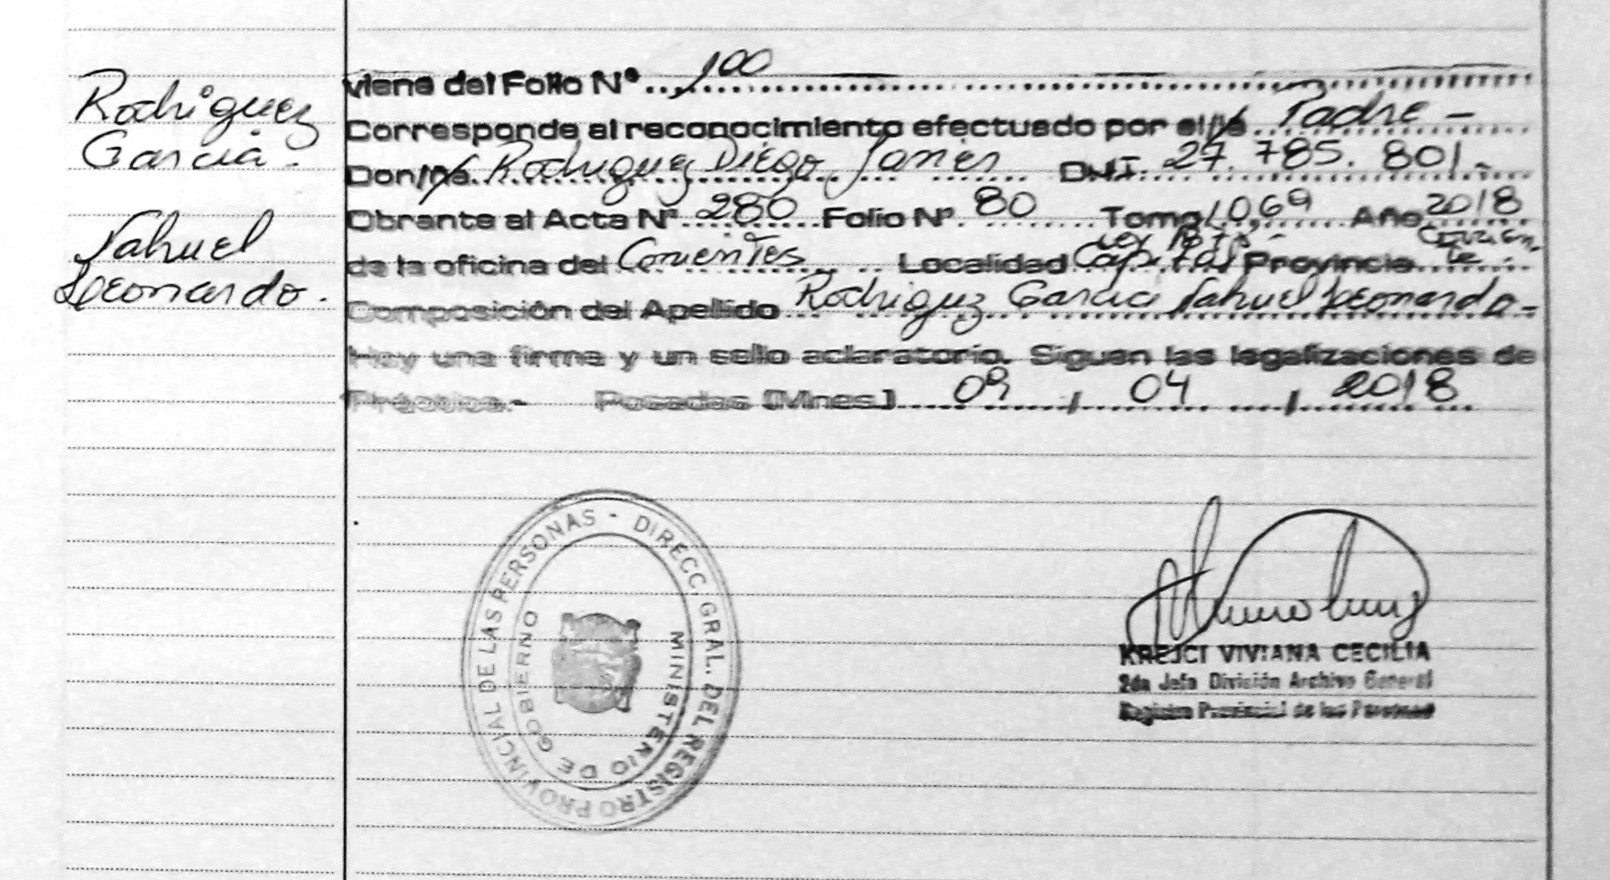 Rodriguez
Garcia.
Nahuel
Leonardo.
Viene del Folio Nº 100
Corresponde al reconocimiento efectuado por el/la Padre -
Don/ña Rodriguez Diego Javier DNI. 27.785.801.-
Obrante al Acta Nº 280 Folio Nº 80 Tomo Año 2018
de la oficina del Corrientes Localidad Capital Provincia
Composición del Apellido Rodriguez Garcia Nahuel Leonardo-
Hay una firma y un sello aclaratorio. Siguen las legalizaciones de
Práctica.- Posadas (Mnes.) 09 / 04 / 2018
DIRECC. GRAL. DEL REGISTRO PROVINCIAL DE LAS PERSONAS -
MINISTERIO DE GOBIERNO
KREJCI VIVIANA CECILIA
2da Jefa División Archivo General
Registro Provincial de las Personas